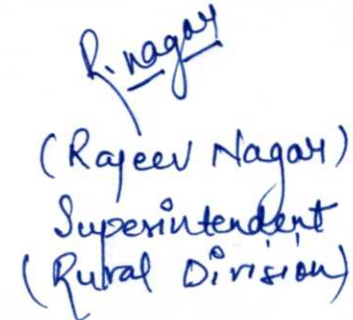 R. Nagar
(Rajeev Nagar)
Superintendent
(Rural Division)